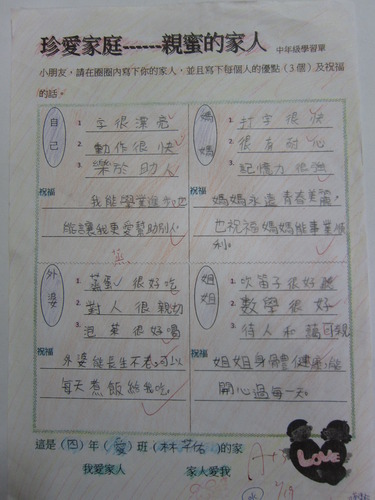 珍愛家庭------親蜜的家人 中年級學習單
小朋友,請在圈圈內寫下你的家人,並且寫下每個人的優點(3個)及祝福
的話。
自己
1. 字很漂亮
2. 動作很快
3. 樂於助人
祝福
我能學業進步也
能讓我更愛幫助別人
媽媽
1. 打字很快
2. 很有耐心
3. 記憶力很強
祝福
媽媽永遠青春美麗,
也祝福媽媽能事業順
利。
外婆
1. 蒸蛋很好吃
2. 對人很親切
3. 泡茶很好喝
祝福
外婆能長生不老可以
每天煮飯給我吃。
蒸
姐姐
1. 吹笛子很好聽
2. 數學很好
3. 待人和藹可親
祝福
姐姐身體健康,能
開心過每一天
這是(四)年(愛)班(林芊佑)的家
我愛家人 家人愛我
A+
LOVE